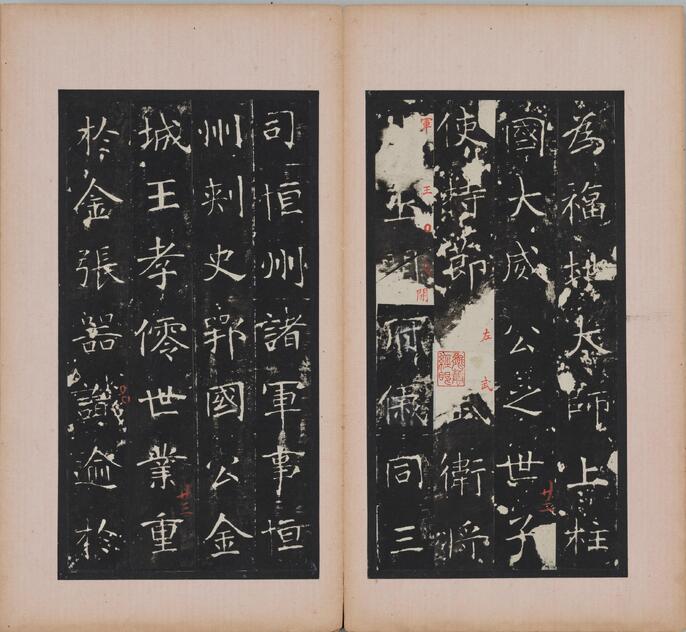 為福大師上柱
國大威公之世子
使持節左武衛將
軍上開府儀同三
司恒州諸軍事恒
州刾史鄂國公金
城王孝僊世業重
廿三
於金張器識逾於